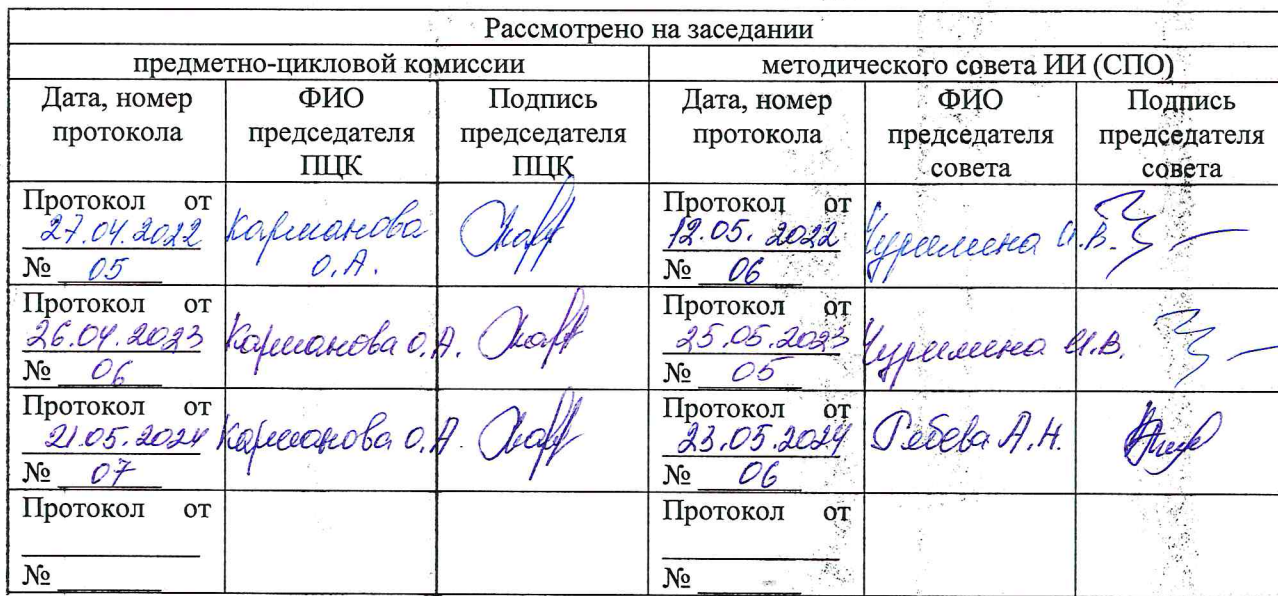 Рассмотрено на заседании
предметно-цикловой комиссии
методического совета ИИ (СПО)
Дата, номер
протокола
ФИО
председателя
ПЦК
Подпись
председателя
ПЦК
Дата, номер
протокола
ФИО
председателя
совета
Подпись
председателя
совета
Протокол от
27.04.2022
№ 05
Карманова
О.А.
Протокол от
12.05.2022
№ 06
Чурилина И.В.
Протокол от
26.04.2023
№ 06
Карманова О.А.
Протокол от
25.05.2023
№ 05
Чурилина И.В.
Протокол от
21.05.2024
№ 07
Карманова О.А.
Протокол от
23.05.2024
№ 06
А.Н.
Протокол от
№
Протокол от
№